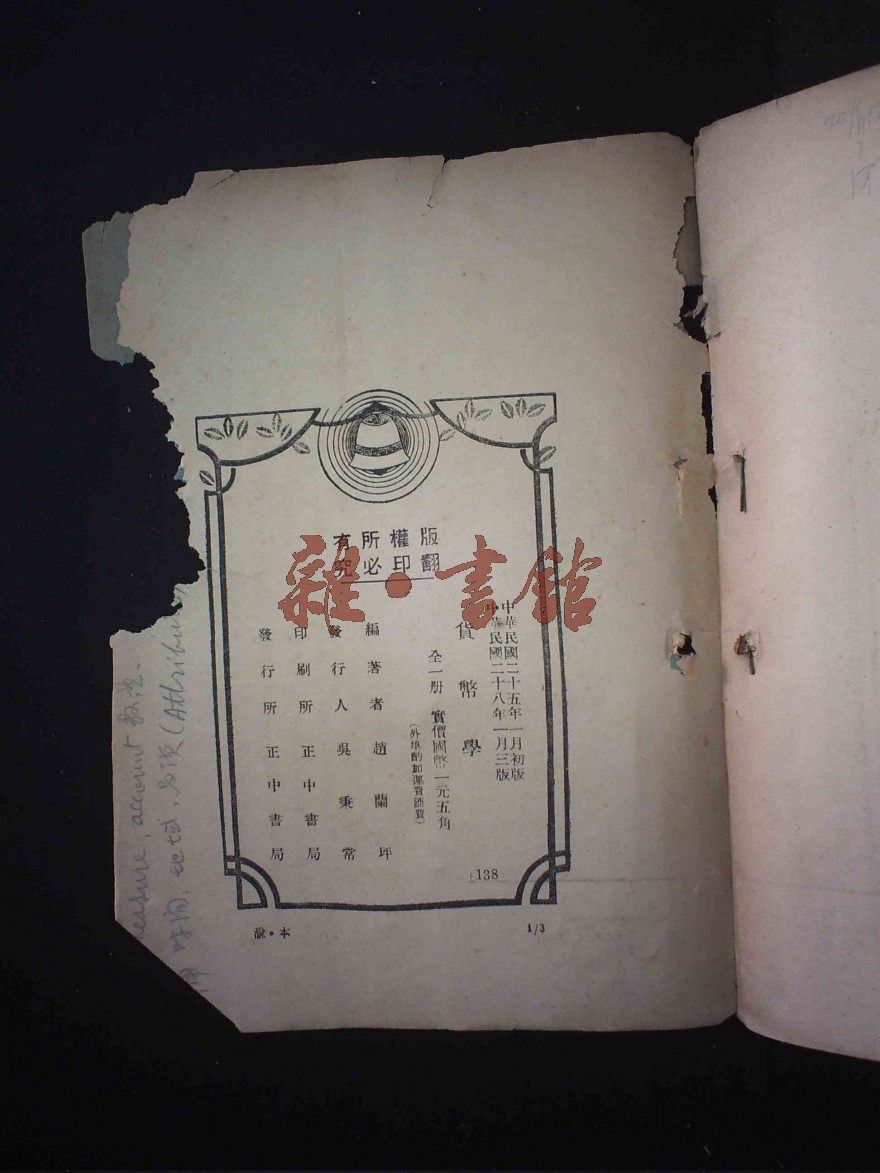 版權所有
翻印必究
中華民國二十五年一月初版
中華民國二十八年一月三版
貨幣學
全一册 實價國幣一元五角
(外埠酌加運費匯費)
編著者 趙蘭坪
發行人 吳秉常
印刷所 正中書局
發行所 正中書局
(138)
1/3
雜·書館
measure, account
時间, 地域,